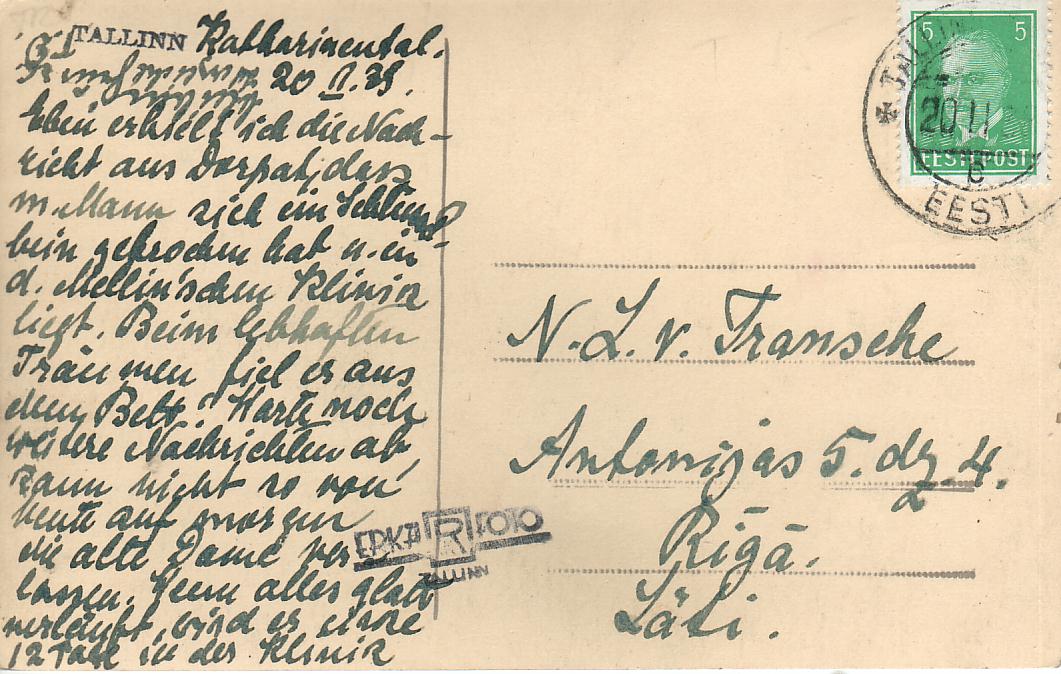 TALLINN Katharinental.
20 II. 39.
Eben erhielt ich die Nach-
richt aus Dorpat, dass
m. Mann sich ein Schlüssel-
bein gebrochen hat u. in
d. Mellin'schen Klinik
liegt. Beim lebhaften
Träumen fiel er aus
dem Bett! Warte noch
weitere Nachrichten ab,
kann nicht so von
heute auf morgen
die alte Dame ver-
lassen. Wenn alles glatt
verläuft, wird er etwa
12 Tage in der Klinik
ERKA R FOTO
TALLINN
5 5
EESTI POST
TALLINN
20 II
C
EESTI
N. L. v. Transehe
Antonijas 5. dz. 4.
Rīgā.
Läti.